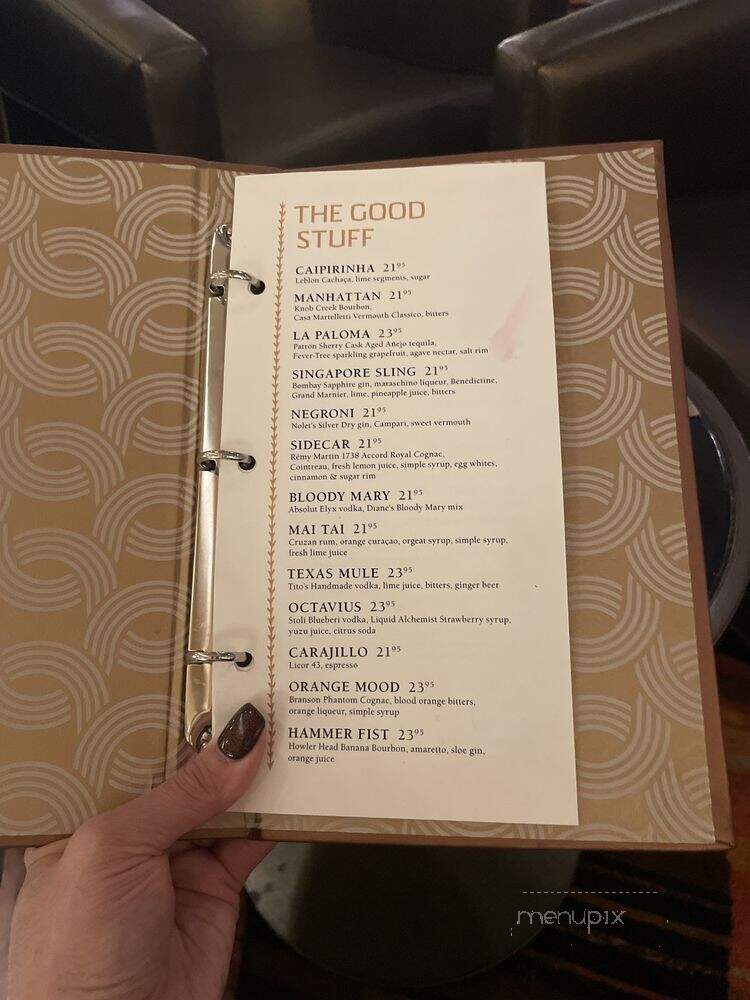 THE GOOD
STUFF
CAIPIRINHA 21⁹⁵
Leblon Cachaça, lime segments, sugar
MANHATTAN 21⁹⁵
Knob Creek Bourbon,
Casa Martelletti Vermouth Classico, bitters
LA PALOMA 23⁹⁵
Patrón Sherry Cask Aged Añejo tequila,
Fever-Tree sparkling grapefruit, agave nectar, salt rim
SINGAPORE SLING 21⁹⁵
Bombay Sapphire gin, maraschino liqueur, Bénédictine,
Grand Marnier, lime, pineapple juice, bitters
NEGRONI 21⁹⁵
Nolet's Silver Dry gin, Campari, sweet vermouth
SIDECAR 21⁹⁵
Rémy Martin 1738 Accord Royal Cognac,
Cointreau, fresh lemon juice, simple syrup, egg whites,
cinnamon & sugar rim
BLOODY MARY 21⁹⁵
Absolut Elyx vodka, Diane's Bloody Mary mix
MAI TAI 21⁹⁵
Cruzan rum, orange curaçao, orgeat syrup, simple syrup,
fresh lime juice
TEXAS MULE 23⁹⁵
Tito's Handmade vodka, lime juice, bitters, ginger beer
OCTAVIUS 23⁹⁵
Stoli Blueberi vodka, Liquid Alchemist Strawberry syrup,
yuzu juice, citrus soda
CARAJILLO 21⁹⁵
Licor 43, espresso
ORANGE MOOD 23⁹⁵
Branson Phantom Cognac, blood orange bitters,
orange liqueur, simple syrup
HAMMER FIST 23⁹⁵
Howler Head Banana Bourbon, amaretto, sloe gin,
orange juice
menupix